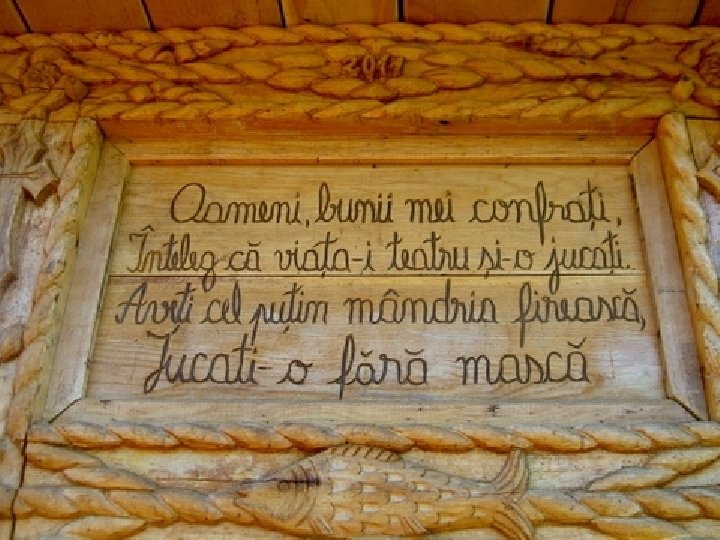 2011
Oameni, bunii mei confrați,
Înțeleg că viața-i teatru și-o jucați.
Aveți cel puțin mândria firească,
Jucați-o fără mască